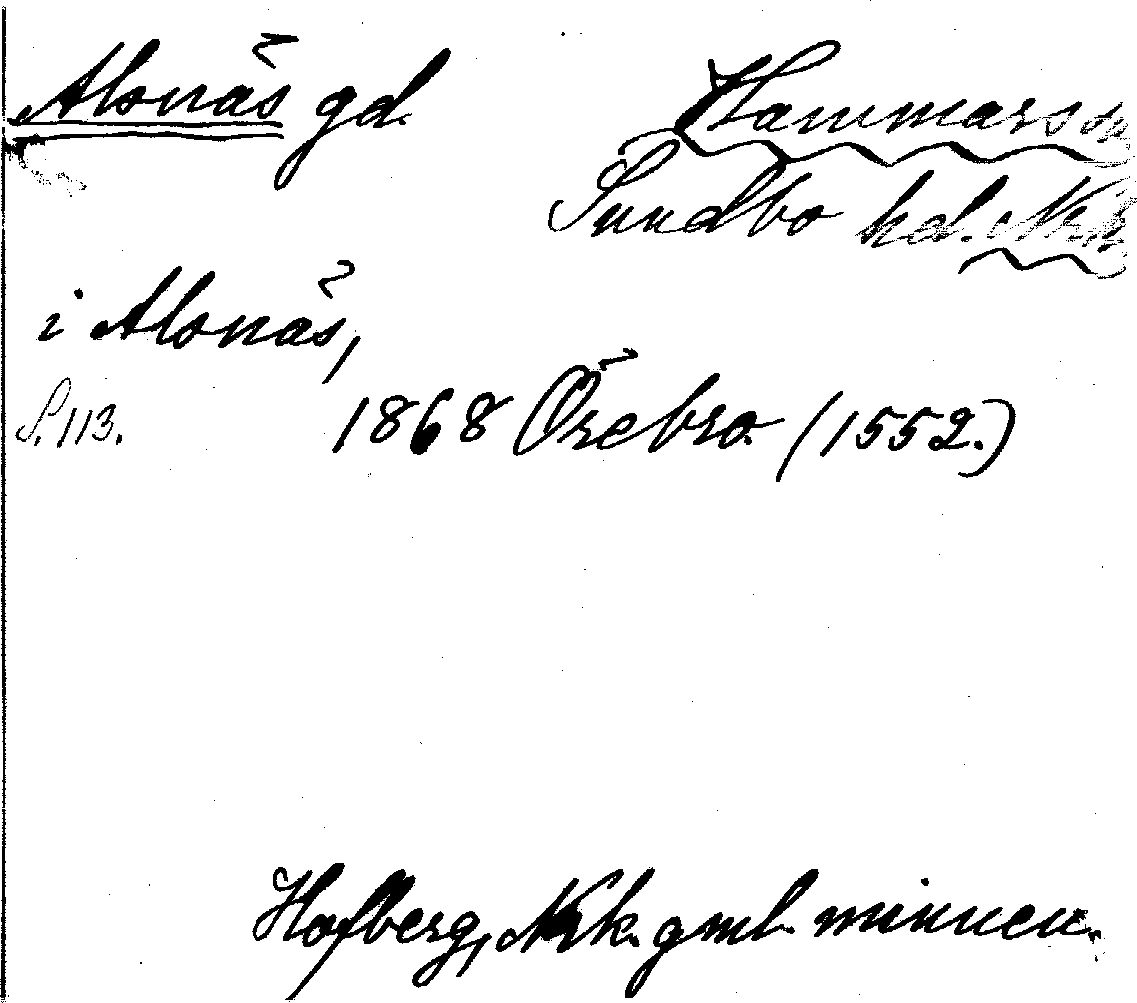 Alsnäs gd. Hammars sn
Sundbo hd. Nrk
i Alsnäs,
S. 113. 1868 Örebro (1552.)
Hofberg, Nrk. gml. minnen.